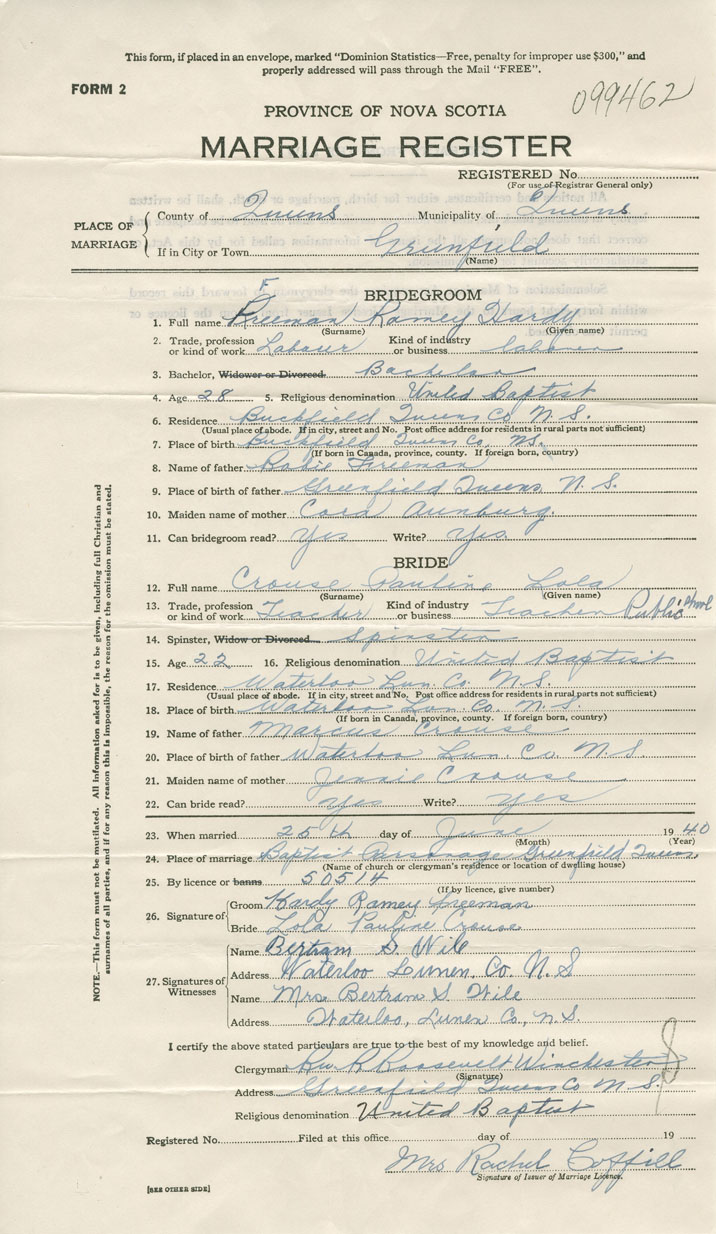 This form, if placed in an envelope, marked "Dominion Statistics—Free, penalty for improper use $300," and
properly addressed will pass through the Mail "FREE".
FORM 2
099462
PROVINCE OF NOVA SCOTIA
MARRIAGE REGISTER
REGISTERED No.
(For use of Registrar General only)
PLACE OF MARRIAGE
County of Queens Municipality of Queens
If in City or Town Greenfield
(Name)
BRIDEGROOM
1. Full name Freeman Ramey Hardy
(Surname) (Given name)
2. Trade, profession or kind of work Labour Kind of industry or business labour
3. Bachelor, Widower or Divorced. Bachelor
4. Age 28 5. Religious denomination United Baptist
6. Residence Buckfield Queens Co N.S.
(Usual place of abode. If in city, street and No. Post office address for residents in rural parts not sufficient)
7. Place of birth Buckfield Queens Co. N.S.
(If born in Canada, province, county. If foreign born, country)
8. Name of father Robie Freeman
9. Place of birth of father Greenfield Queens N.S.
10. Maiden name of mother Cora
11. Can bridegroom read? Yes Write? Yes
BRIDE
12. Full name Crouse Pauline Lola
(Surname) (Given name)
13. Trade, profession or kind of work Teacher Kind of industry or business Teacher Public School
14. Spinster, Widow or Divorced Spinster
15. Age 22 16. Religious denomination United Baptist
17. Residence Waterloo Lun. Co. N.S.
(Usual place of abode. If in city, street and No. Post office address for residents in rural parts not sufficient)
18. Place of birth Waterloo Lun. Co. N.S.
(If born in Canada, province, county. If foreign born, country)
19. Name of father Marcus Crouse
20. Place of birth of father Waterloo Lun. Co. N.S
21. Maiden name of mother Jennie Crouse
22. Can bride read? Yes Write? Yes
23. When married 25th day of June 1940
(Month) (Year)
24. Place of marriage Baptist Parsonage Greenfield Queens
(Name of church or clergyman's residence or location of dwelling house)
25. By licence or banns 50514
(If by licence, give number)
26. Signature of
Groom Hardy Ramey Freeman
Bride Lola Pauline Crouse
27. Signatures of Witnesses
Name Bertram S. Wile
Address Waterloo Lunen. Co. N.S
Name Mrs. Bertram S. Wile
Address Waterloo, Lunen Co., N.S.
I certify the above stated particulars are true to the best of my knowledge and belief.
Clergyman Rev. R Roosevelt Winchester
(Signature)
Address Greenfield Queens Co N.S.
Religious denomination United Baptist
Registered No. Filed at this office day of 19
Mrs Rachel Coffill
Signature of Issuer of Marriage Licence.
[SEE OTHER SIDE]
NOTE.—This form must not be mutilated. All information asked for is to be given, including full Christian and
surnames of all parties, and if for any reason this is impossible, the reason for the omission must be stated.